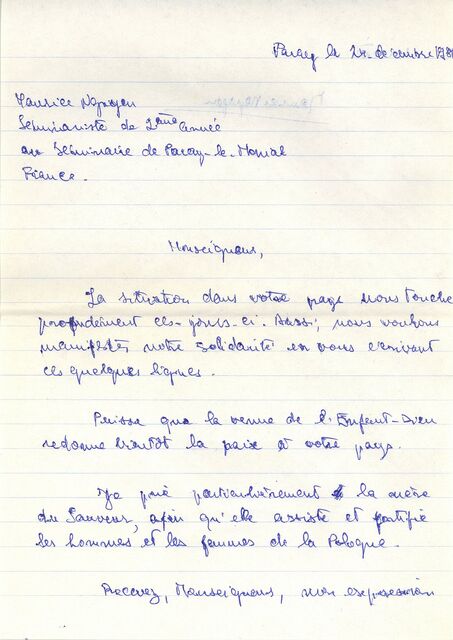 Paray le 24 décembre 198
Maurice Nguyen
Séminariste de 2ème année
au Séminaire de Paray-le-Monial
France.
Monseigneur,
La situation dans votre pays nous touche
profondément ces-jours-ci. Aussi, nous voulons
manifester notre solidarité en vous écrivant
ces quelques lignes.
Puisse que la venue de l'Enfant-Dieu
redonne bientôt la paix à votre pays.
Je prie particulièrement la mère
du Sauveur, afin qu'elle assiste et fortifie
les hommes et les femmes de la Pologne.
Recevez, Monseigneur, mon expression